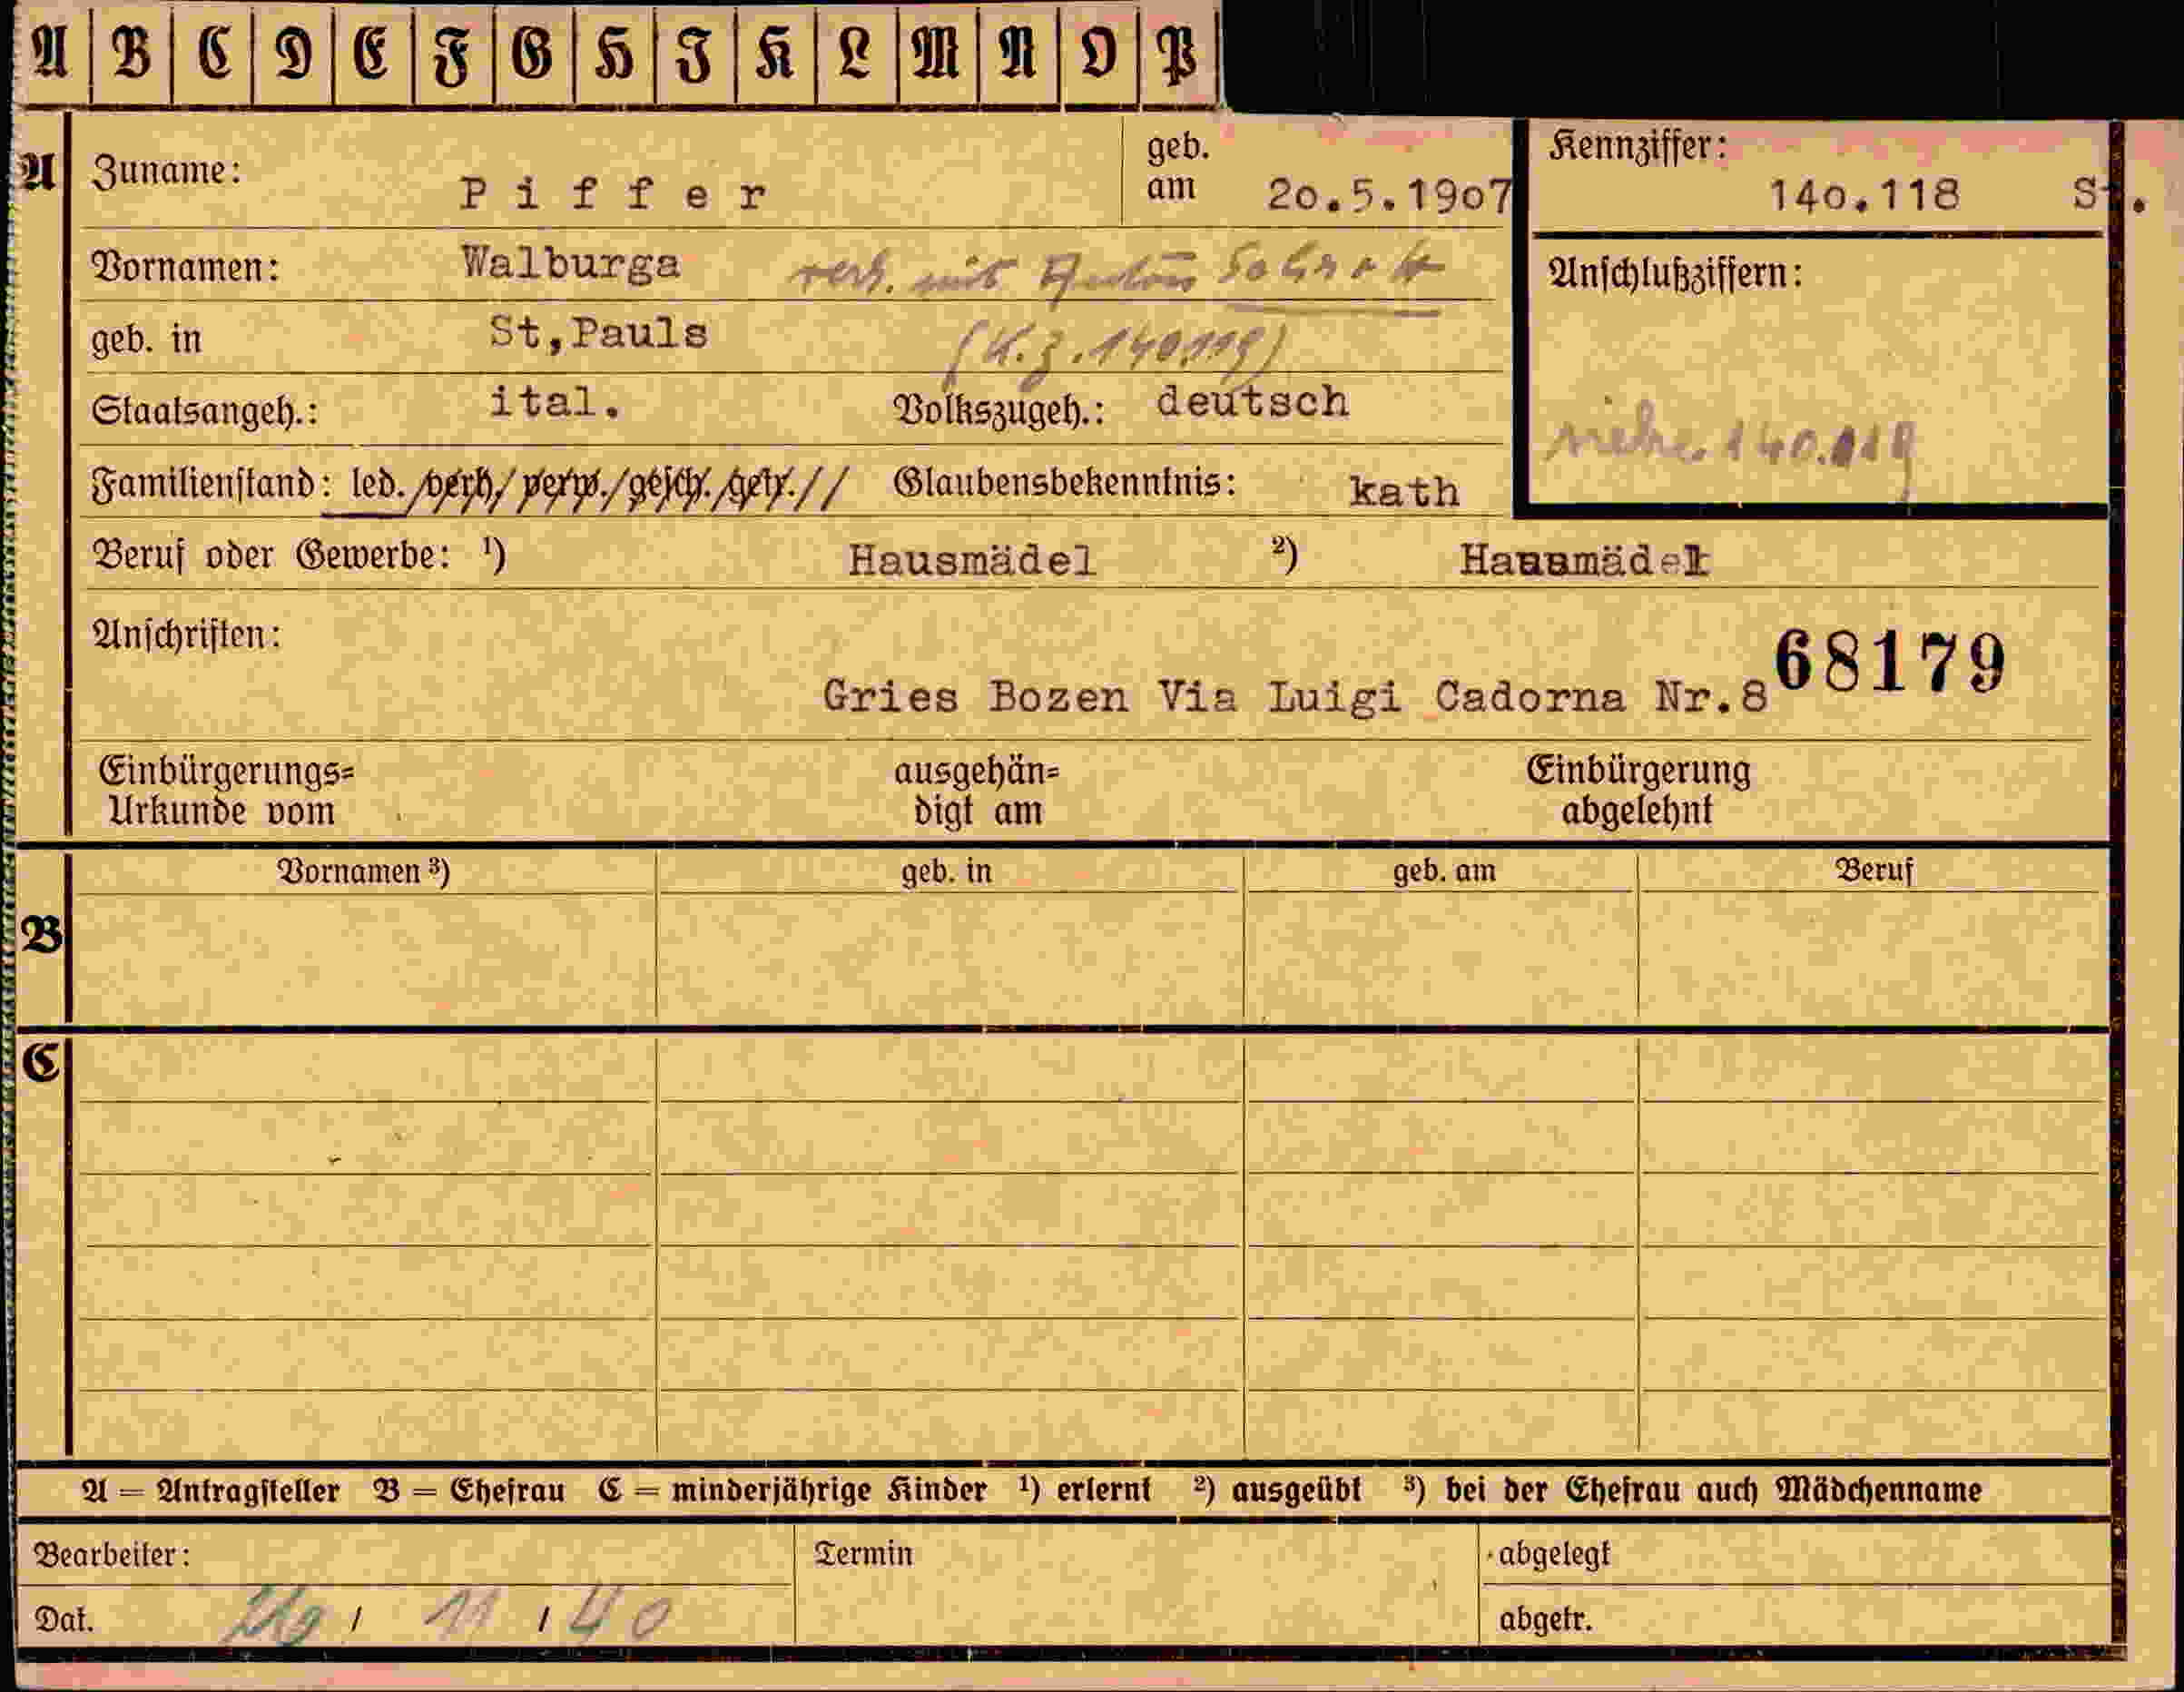 A B C D E F G H I K L M N O P
A Zuname: Piffer geb. am 20.5.1907 Kennziffer: 140.118 St.
Vornamen: Walburga verh. mit Anton Anschlußziffern:
geb. in St,Pauls (K.Z.140.119)
Staatsangeh.: ital. Volkszugeh.: deutsch siehe 140.119
Familienstand: led./verh./verw./gesch./getr.// Glaubensbekenntnis: kath
Beruf oder Gewerbe: ¹) Hausmädel ²) Hausmädel
Anschriften: 68179
Gries Bozen Via Luigi Cadorna Nr.8
Einbürgerungs= ausgehän= Einbürgerung
Urkunde vom digt am abgelehnt
Vornamen ³) geb. in geb. am Beruf
B
C
A = Antragsteller B = Ehefrau C = minderjährige Kinder ¹) erlernt ²) ausgeübt ³) bei der Ehefrau auch Mädchenname
Bearbeiter: Termin abgelegt
Dat. / 11 / 40 abgetr.